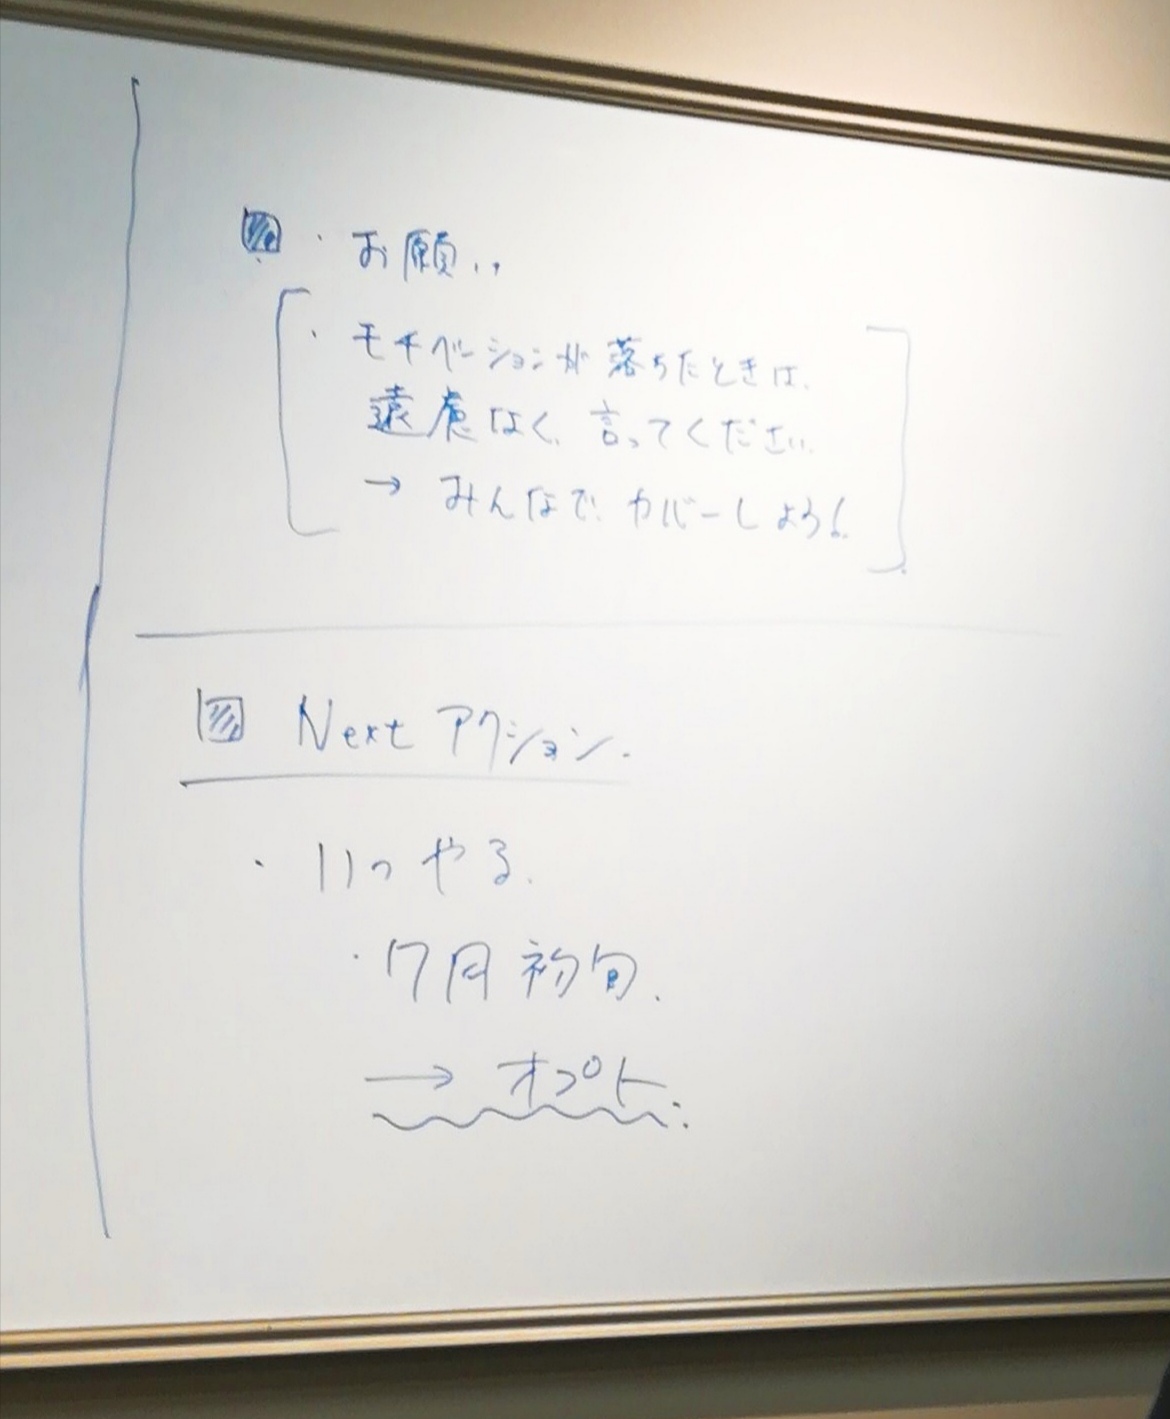 ・お願い
・モチベーションが落ちたときは、
遠慮なく、言ってください
→ みんなで カバーしよう!
Next アクション.
・いつやる.
・7月初旬.
→ オプト.